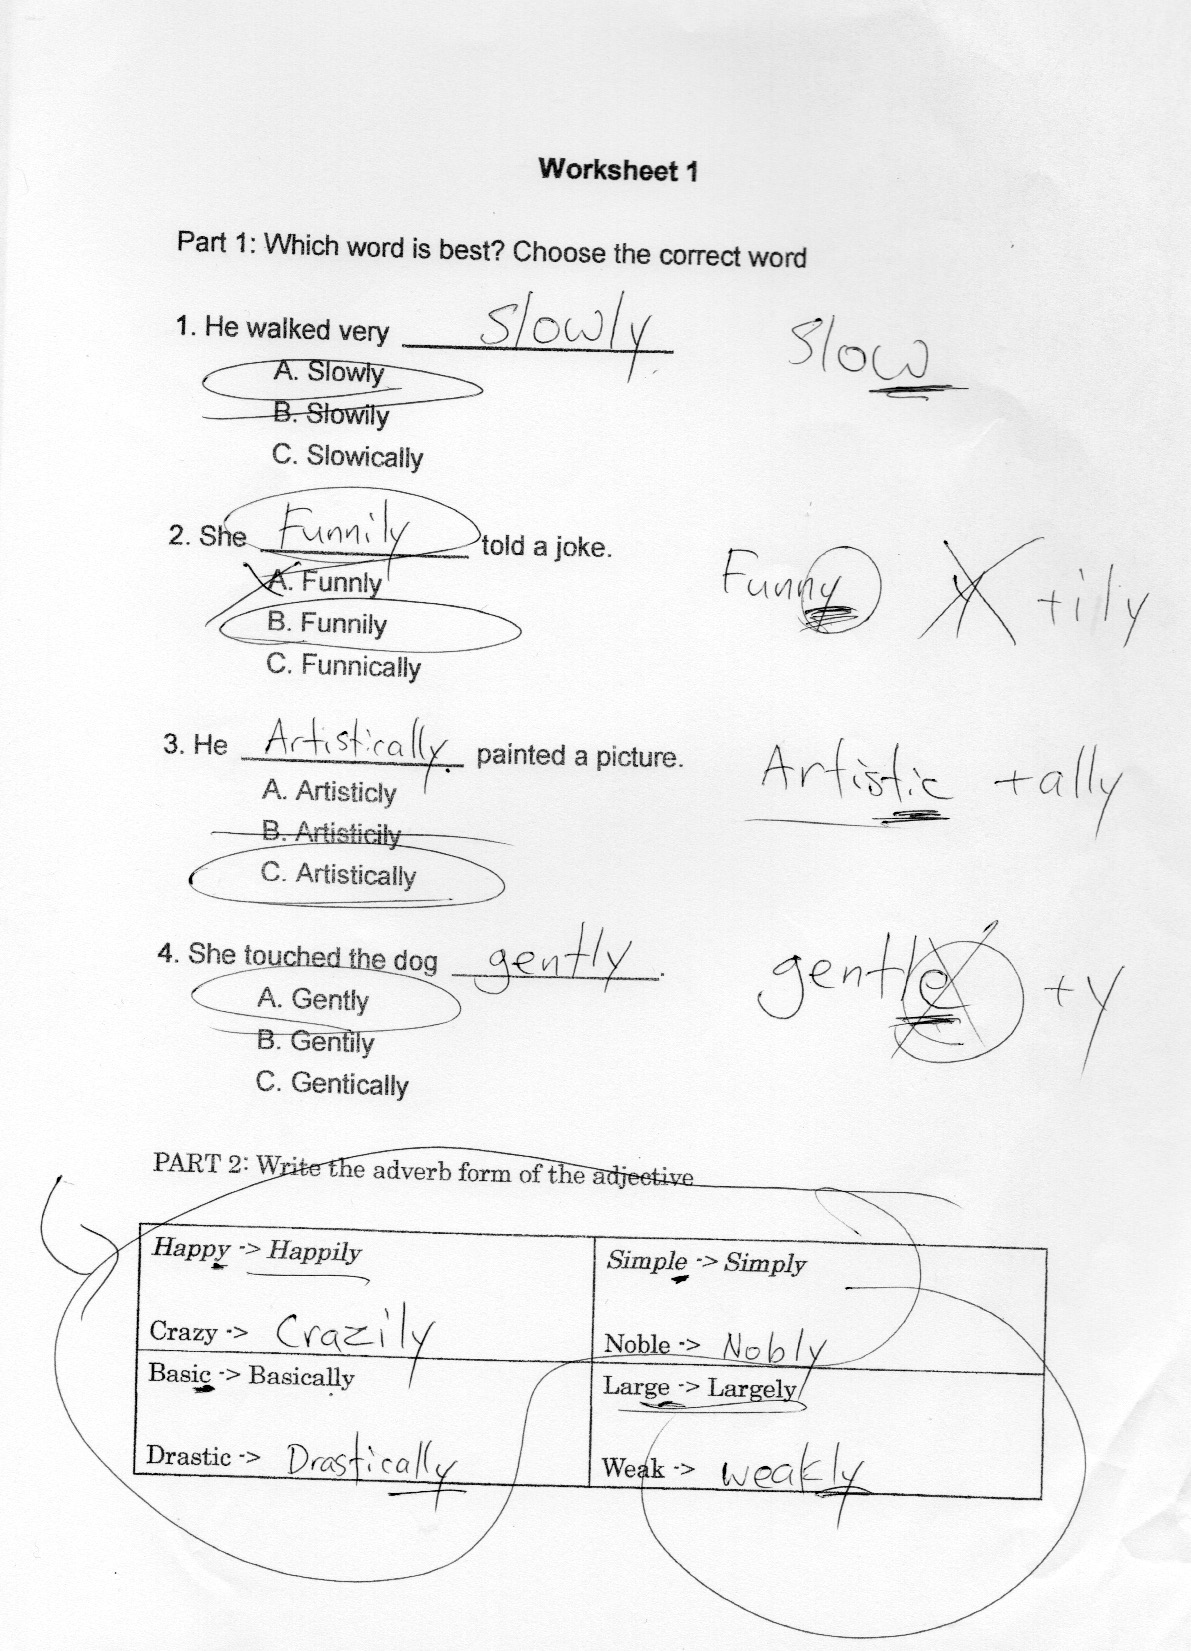 Worksheet 1
Part 1: Which word is best? Choose the correct word
1. He walked very slowly. slow
A. Slowly
B. Slowily
C. Slowically
2. She Funnily told a joke.
A. Funnly Funny y +ily
B. Funnily
C. Funnically
3. He Artistically painted a picture.
A. Artisticly Artistic +ally
B. Artisticily
C. Artistically
4. She touched the dog gently. gentle +y
A. Gently
B. Gentily
C. Gentically
PART 2: Write the adverb form of the adjective
Happy -> Happily
Crazy -> Crazily
Simple -> Simply
Noble -> Nobly
Basic -> Basically
Drastic -> Drastically
Large -> Largely
Weak -> weakly